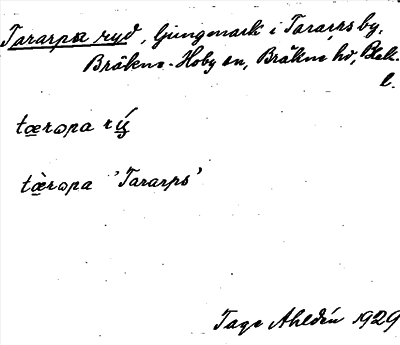 Tararpa ryd, ljungmark i Tararps by,
Bräkne-Hoby sn, Bräkne hd, Blek.
l.
tæropa rý
tæ̀ropa 'Tararps'
Tage Ahldén 1929